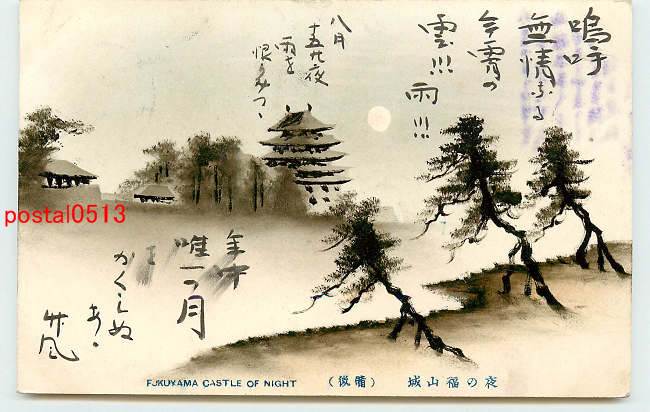 嗚呼
無情なる
今宵の
雲!!! 雨!!!
八月
十五夜
雨を
恨みつゝ
年中
唯一の月
かくらぬ
あゝ
竹風
postal0513
夜の福山城
FUKUYAMA CASTLE OF NIGHT